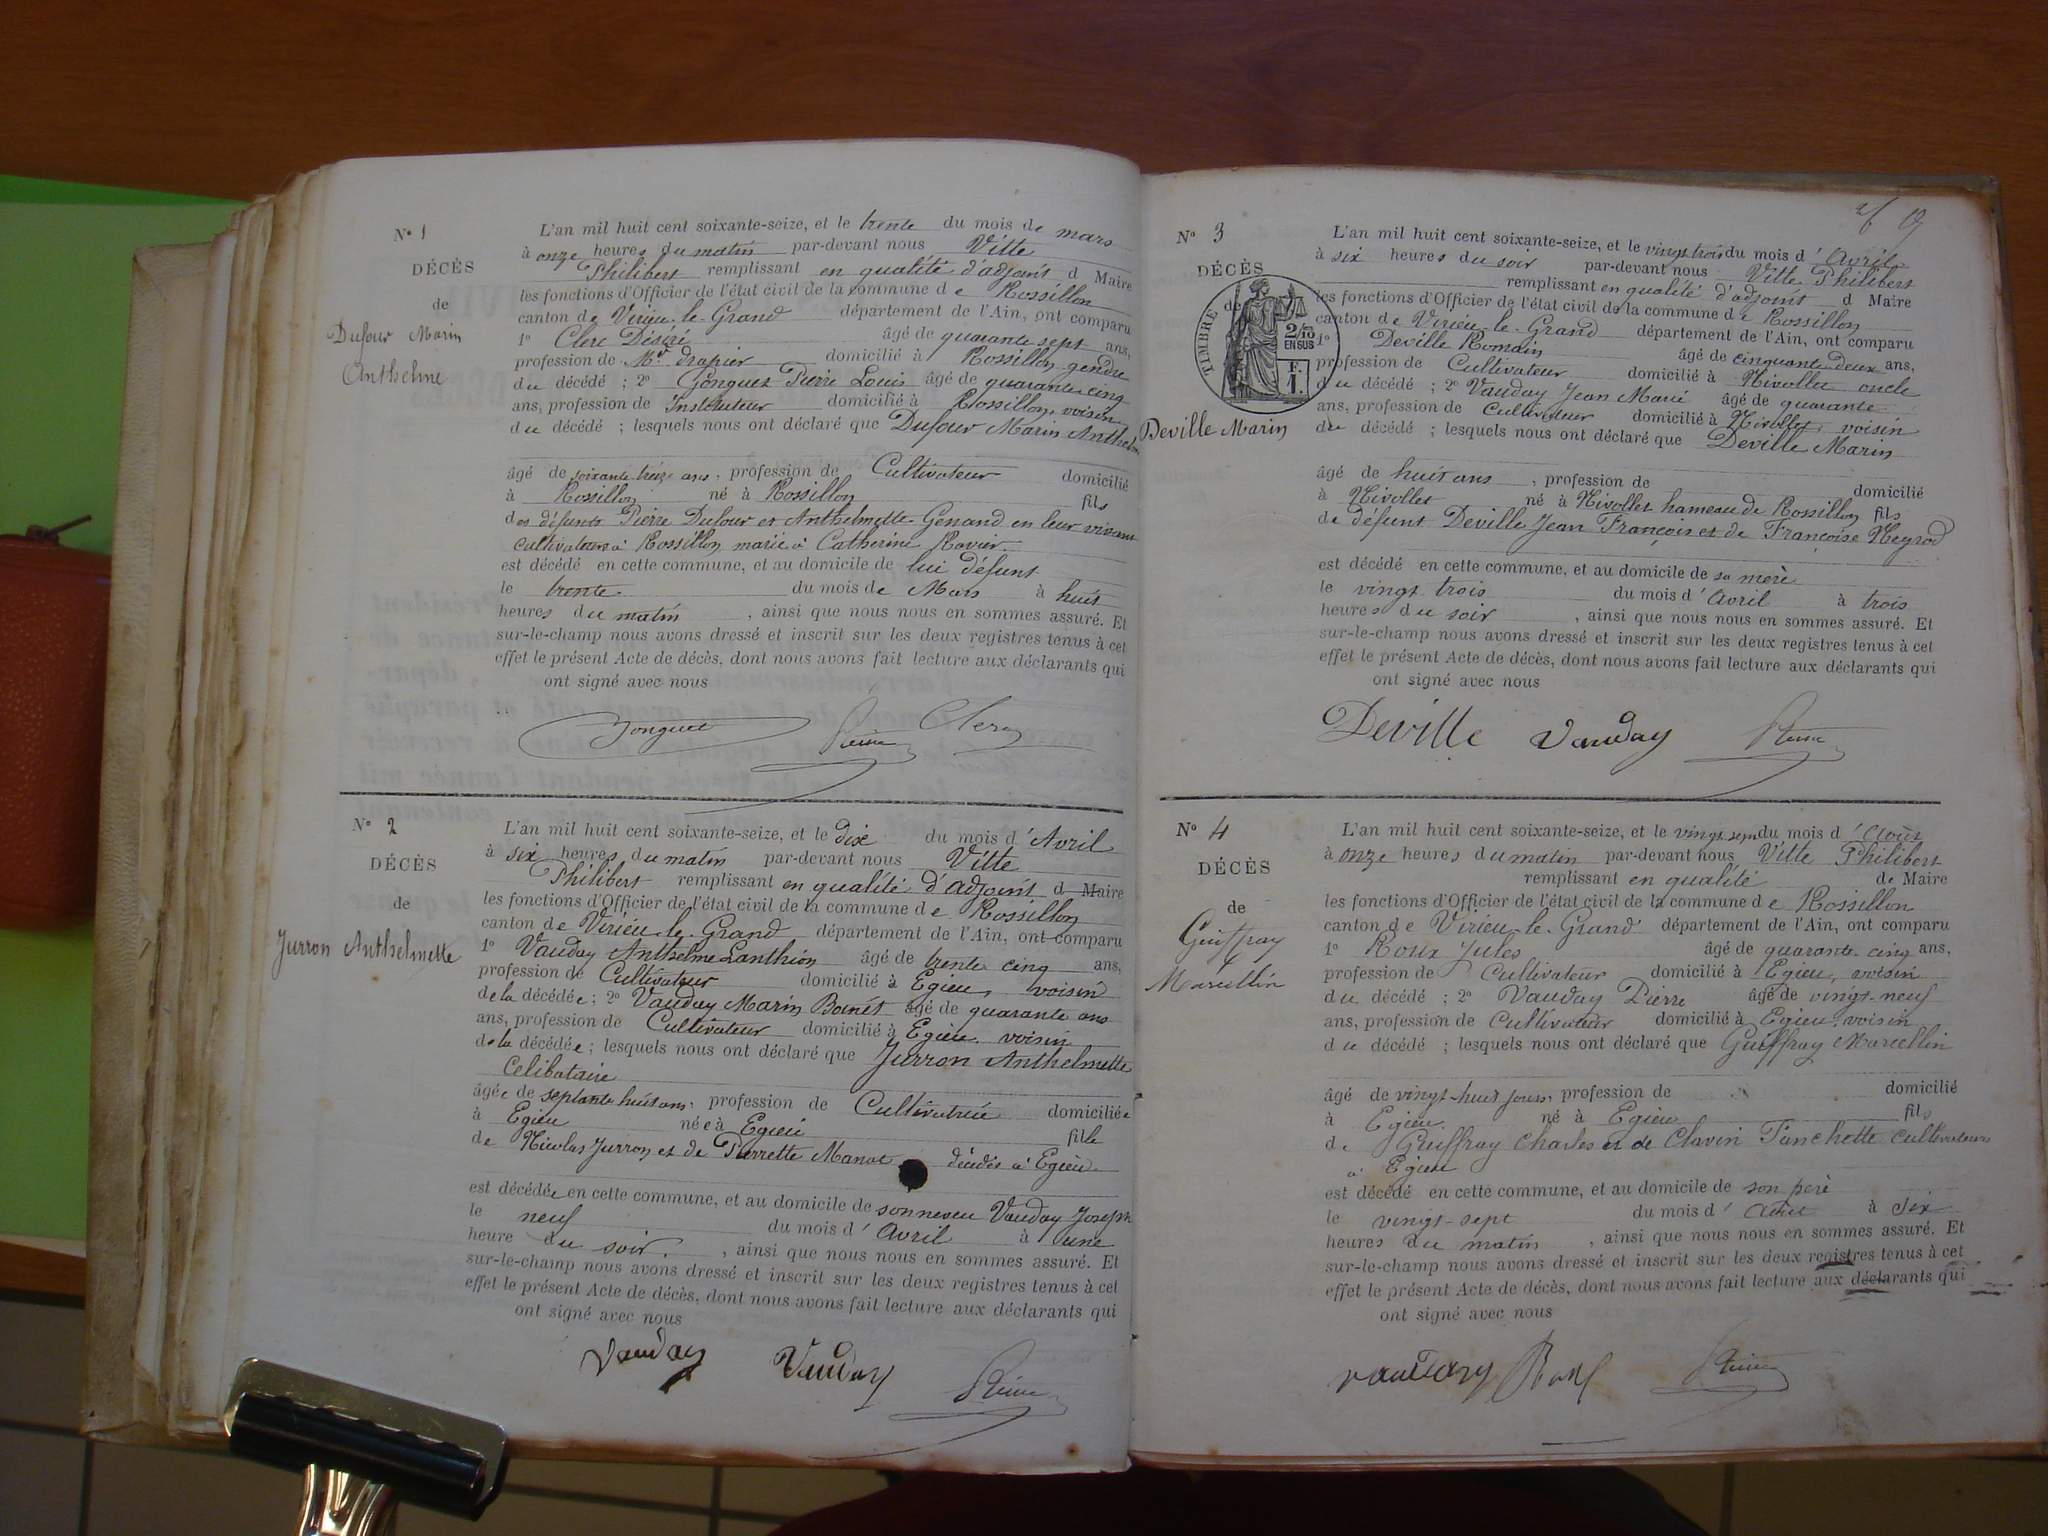 N° 1
DÉCÈS
de
Dufour Marin
Anthelme
L'an mil huit cent soixante-seize, et le trente du mois de mars
à onze heures du matin par-devant nous Vitte
Philibert remplissant en qualité d'adjoint d Maire
les fonctions d'Officier de l'état civil de la commune de Rossillon
canton de Virieu-le-Grand département de l'Ain, ont comparu
1° Clerc Désiré âgé de quarante sept ans,
profession de Md drapier domicilié à Rossillon gendre
du décédé ; 2° Gonguet Pierre Louis âgé de quarante cinq
ans, profession de Instituteur domicilié à Rossillon, voisin
du décédé ; lesquels nous ont déclaré que Dufour Marin Anthelme
âgé de soixante treize ans, profession de Cultivateur domicilié
à Rossillon né à Rossillon fils
des défunts Pierre Dufour et Anthelmette Genand en leur vivant
cultivateurs à Rossillon marié à Catherine Ravier
est décédé en cette commune, et au domicile de lui défunt
le trente du mois de Mars à huit
heures du matin , ainsi que nous nous en sommes assuré. Et
sur-le-champ nous avons dressé et inscrit sur les deux registres tenus à cet
effet le présent Acte de décès, dont nous avons fait lecture aux déclarants qui
ont signé avec nous
Gonguet Clerc
N° 2
DÉCÈS
de
Jurron Anthelmette
L'an mil huit cent soixante-seize, et le dix du mois d'Avril
à six heures du matin par-devant nous Vitte
Philibert remplissant en qualité d'adjoint d Maire
les fonctions d'Officier de l'état civil de la commune de Rossillon
canton de Virieu-le-Grand département de l'Ain, ont comparu
1° Vauday Anthelme Lanthion âgé de trente cinq ans,
profession de Cultivateur domicilié à Egieu, voisin
de la décédée ; 2° Vauday Marin Boinét âgé de quarante ans
ans, profession de Cultivateur domicilié à Egieu voisin
de la décédée ; lesquels nous ont déclaré que Jurron Anthelmette
Celibataire
âgée de septante huit ans, profession de Cultivatrice domiciliée
à Egieu née à Egieu fille
de Nicolas Jurron et de Pierrette Manat décédés à Egieu
est décédée en cette commune, et au domicile de son neveu Vauday Joseph
le neuf du mois d'Avril à une
heure du soir. , ainsi que nous nous en sommes assuré. Et
sur-le-champ nous avons dressé et inscrit sur les deux registres tenus à cet
effet le présent Acte de décès, dont nous avons fait lecture aux déclarants qui
ont signé avec nous
Vauday Vauday
N° 3
DÉCÈS
de
TIMBRE
2/10
EN SUS
F.
1.
Deville Marin
L'an mil huit cent soixante-seize, et le vingt trois du mois d'Avril
à six heures du soir par-devant nous Vitte Philibert
remplissant en qualité d'adjoint d Maire
les fonctions d'Officier de l'état civil de la commune de Rossillon
canton de Virieu-le-Grand département de l'Ain, ont comparu
1° Deville Romain âgé de cinquante deux ans,
profession de Cultivateur domicilié à Nivollet oncle
du décédé ; 2° Vauday Jean Marie âgé de quarante
ans, profession de Cultivateur domicilié à Nivollet, voisin
du décédé ; lesquels nous ont déclaré que Deville Marin
âgé de huit ans , profession de domicilié
à Nivollet né à Nivollet hameau de Rossillon fils
de défunt Deville Jean François et de Françoise Neyrod
est décédé en cette commune, et au domicile de sa mère
le vingt trois du mois d'Avril à trois
heures du soir , ainsi que nous nous en sommes assuré. Et
sur-le-champ nous avons dressé et inscrit sur les deux registres tenus à cet
effet le présent Acte de décès, dont nous avons fait lecture aux déclarants qui
ont signé avec nous
Deville Vauday
N° 4
DÉCÈS
de
Guiffray
Marcellin
L'an mil huit cent soixante-seize, et le vingt sept du mois d'Août
à onze heures du matin par-devant nous Vitte Philibert
remplissant en qualité de Maire
les fonctions d'Officier de l'état civil de la commune de Rossillon
canton de Virieu-le-Grand département de l'Ain, ont comparu
1° Roux Jules âgé de quarante-cinq ans,
profession de Cultivateur domicilié à Egieu, voisin
du décédé ; 2° Vauday Pierre âgé de vingt-neuf
ans, profession de Cultivateur domicilié à Egieu, voisin
du décédé ; lesquels nous ont déclaré que Guiffray Marcellin
âgé de vingt-huit jours, profession de domicilié
à Egieu né à Egieu fils
de Guiffray Charles et de Clavin Fanchette cultivateurs
à Egieu
est décédé en cette commune, et au domicile de son père
le vingt-sept du mois d'Août à six
heures du matin , ainsi que nous nous en sommes assuré. Et
sur-le-champ nous avons dressé et inscrit sur les deux registres tenus à cet
effet le présent Acte de décès, dont nous avons fait lecture aux déclarants qui
ont signé avec nous
Vauday Roux